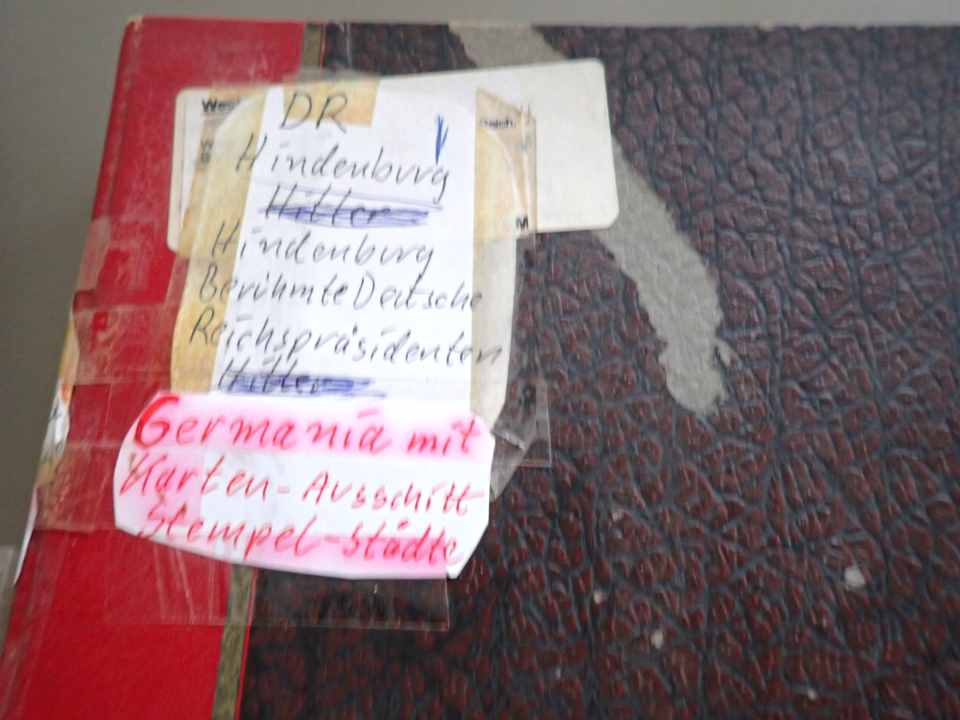 DR
Hindenburg
Hitler
Hindenburg
Berühmte Deutsche
Reichspräsidenten
Hitler
Germania mit
Karten-Ausschitt
Stempel-Städte